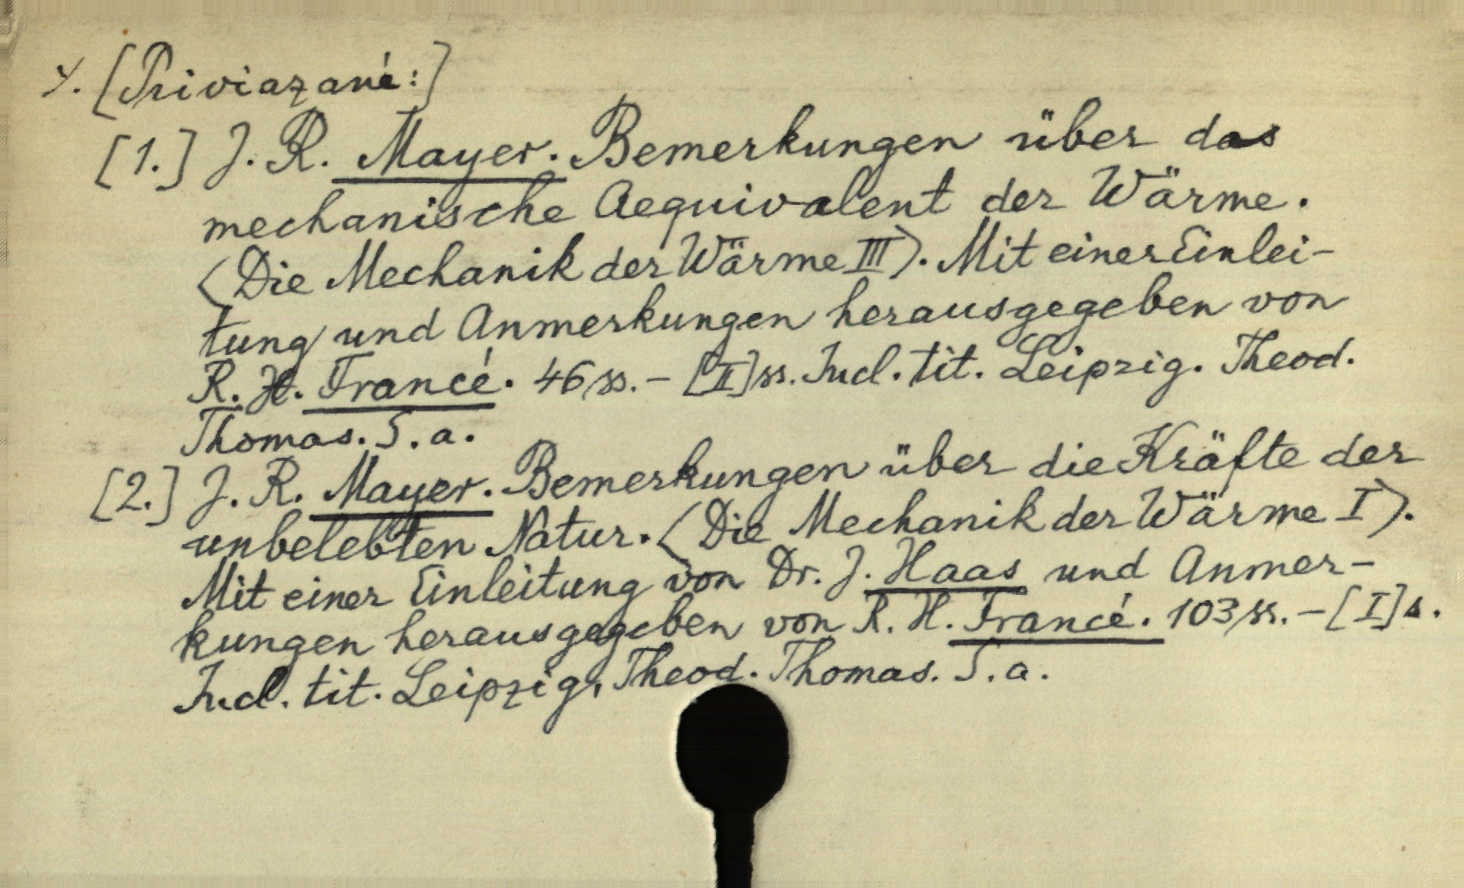 4. [Priviazané:]
[1.] J. R. Mayer. Bemerkungen über das
mechanische Aequivalent der Wärme.
<Die Mechanik der Wärme III>. Mit einer Einlei-
tung und Anmerkungen herausgegeben von
R. H. Francé. 46 ss. - [II] ss. Incl. tit. Leipzig. Theod.
Thomas. S. a.
[2.] J. R. Mayer. Bemerkungen über die Kräfte der
unbelebten Natur. <Die Mechanik der Wärme I>.
Mit einer Einleitung von Dr. J. Haas und Anmer-
kungen herausgegeben von R. H. Francé. 103 ss. - [I] s.
Incl. tit. Leipzig, Theod. Thomas. S. a.